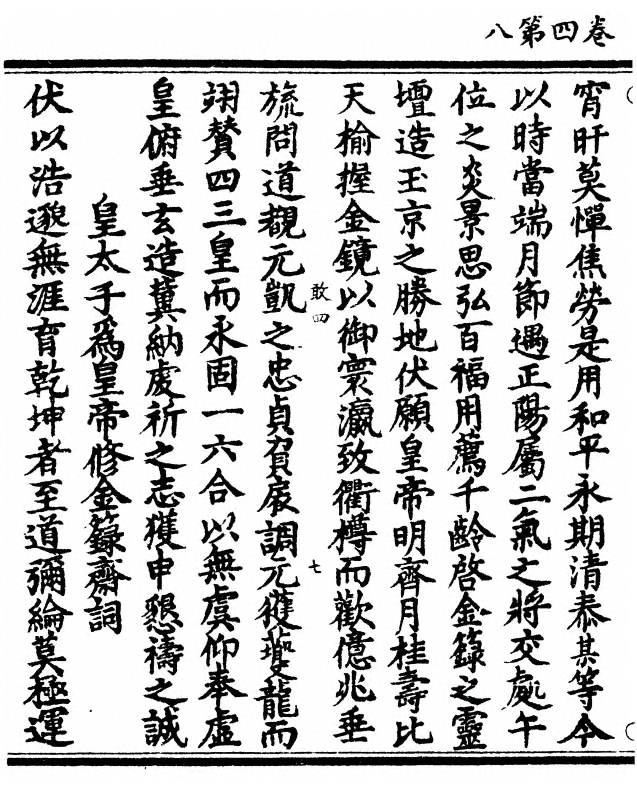 八第四卷
宵旰莫憚焦勞是用和平永期清泰某等今
以時當端月節遇正陽屬二氣之將交處午
位之炎景思弘百福用薦千齡啓金籙之靈
壇造玉京之勝地伏願皇帝明齊月桂壽比
天榆握金鏡以御寰瀛致衢樽而歡億兆垂
敢四 七
旒問道覩元凱之忠貞負扆調元獲夔龍而
翊贊四三皇而永固一六合以無虞仰奉虛
皇俯垂玄造冀納處祈之志獲申懇禱之誠
皇太子爲皇帝修金籙齋詞
伏以浩邈無涯育乾坤者至道彌綸莫極運